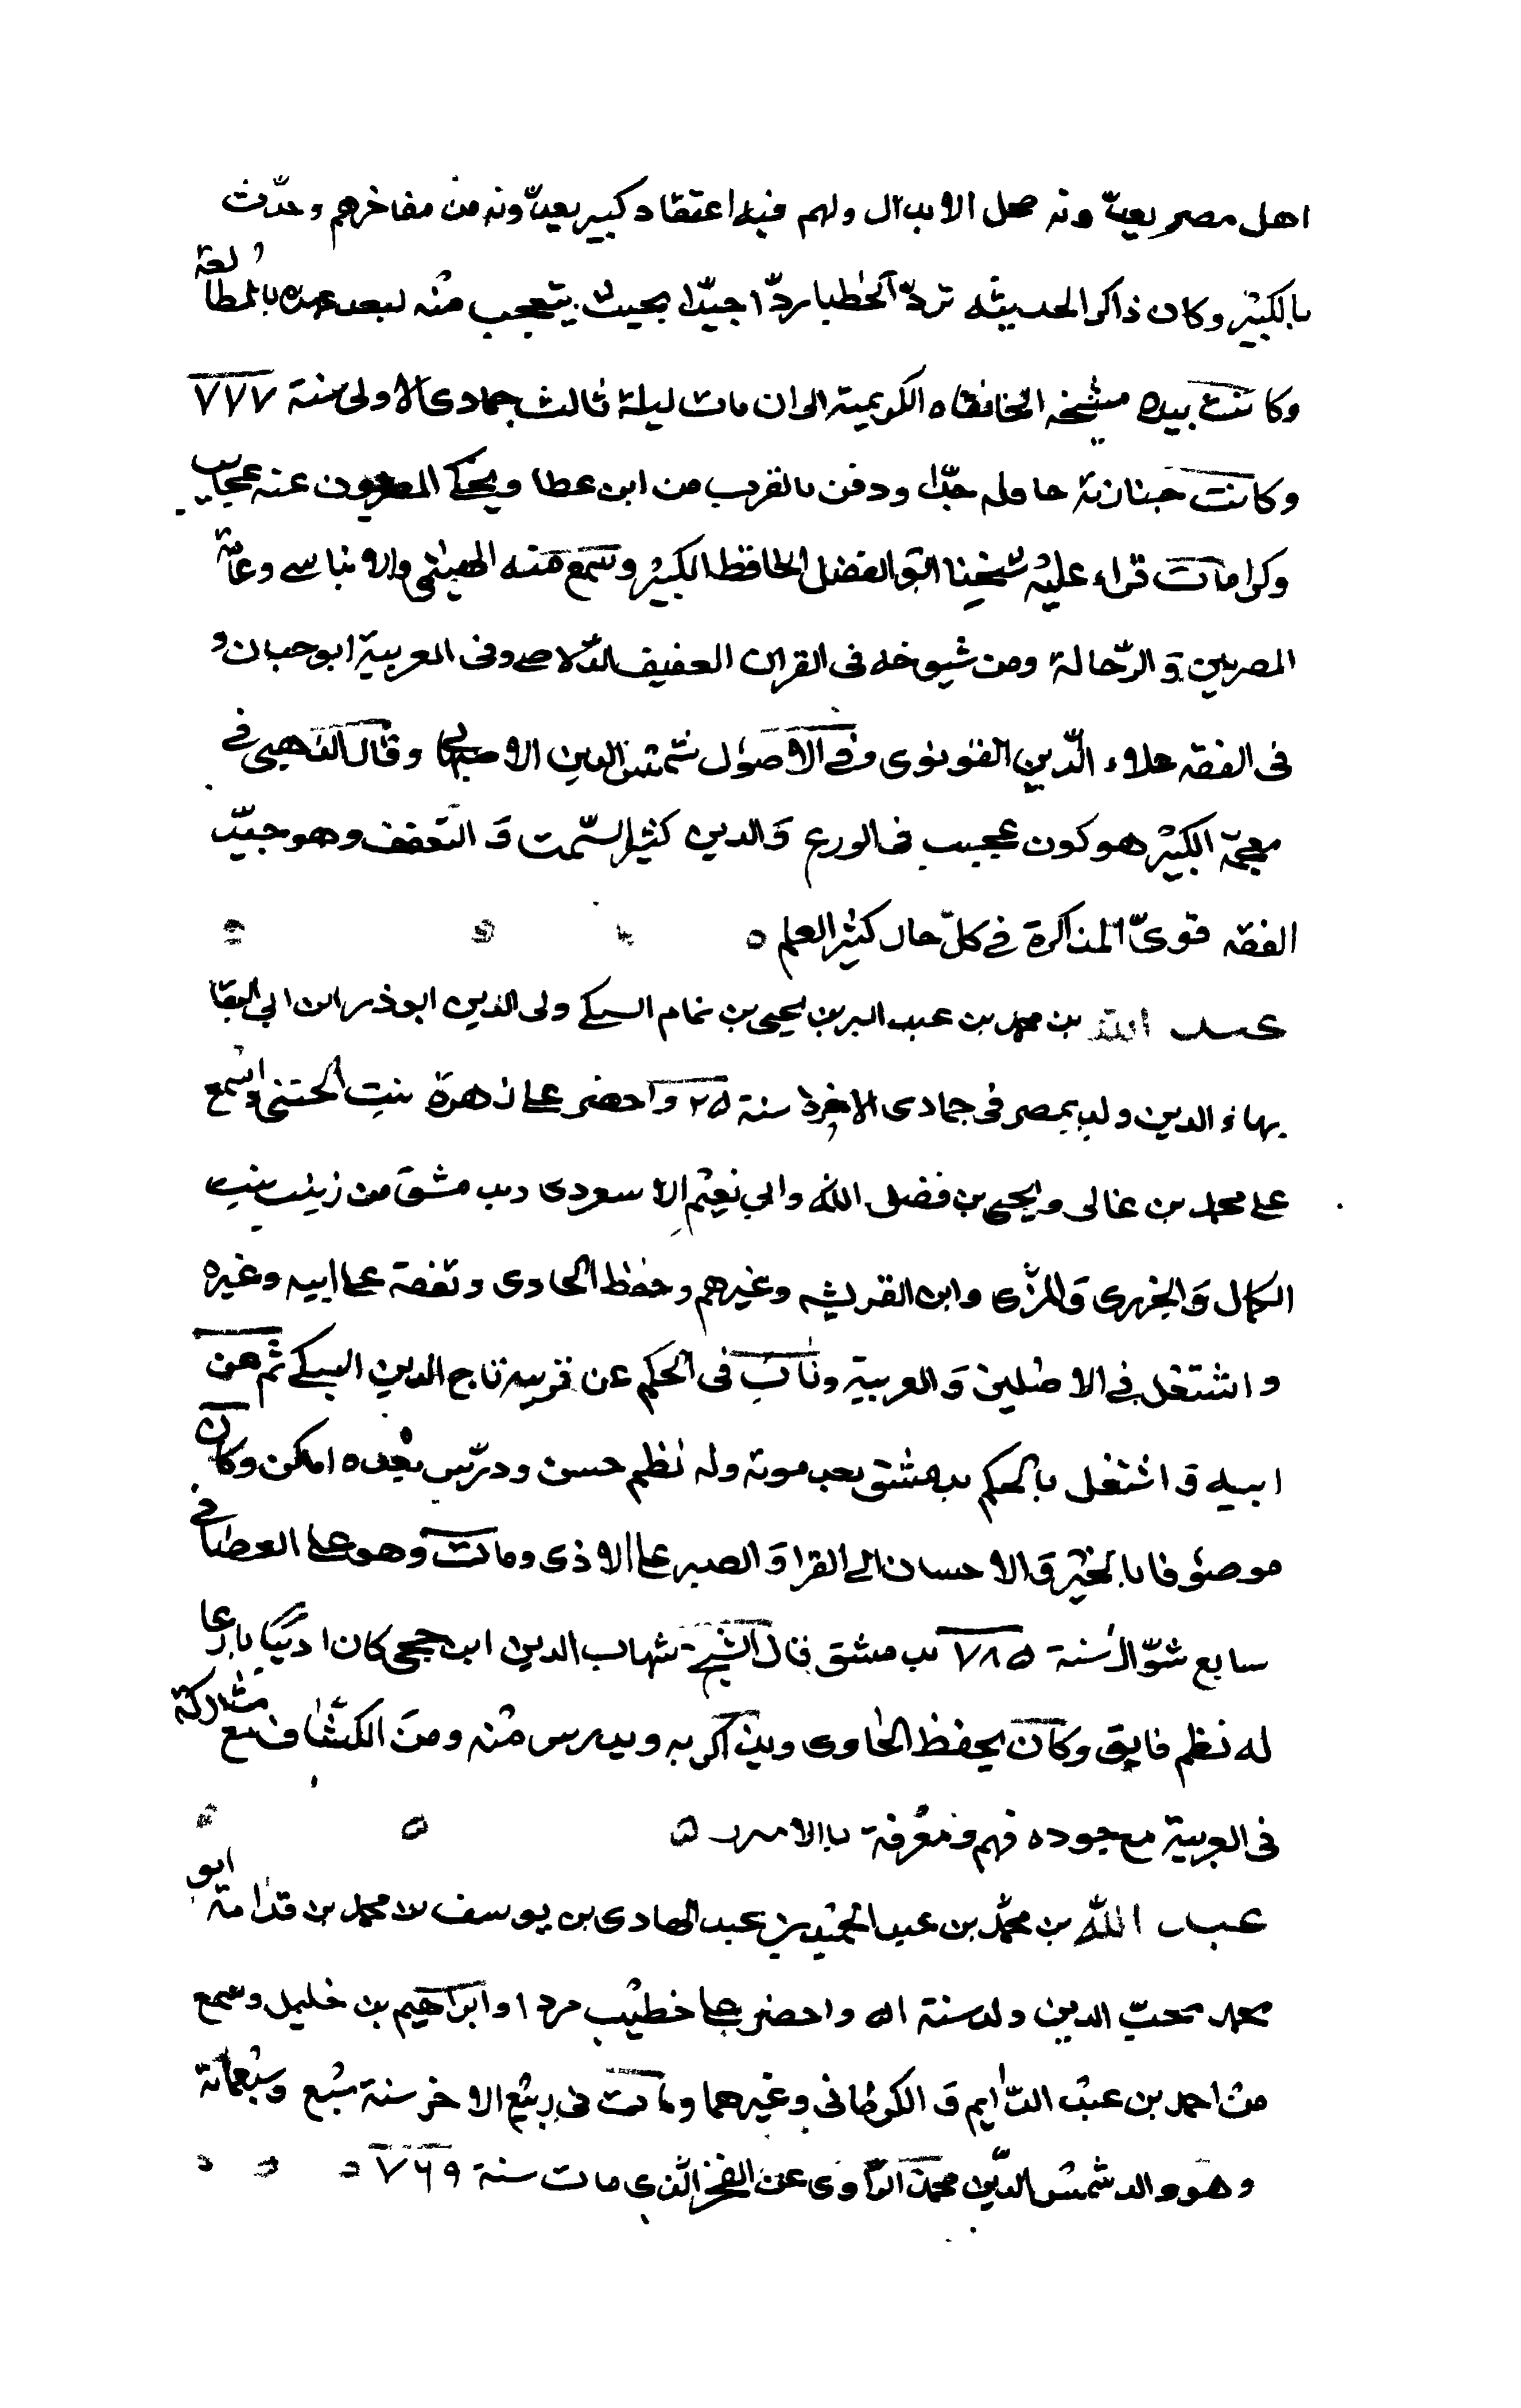 اهل مصر يعدّونه محل الابدال ولهم فيه اعتقاد كبير يعدّونه من مفاخرهم وحدّث
بالكبير وكان ذاكرا لحديثه تردّ الخطبا ردّا جيّدا بحيث يتعجب منه لبعد عهده بالمطالعة
وكانت بيده مشيخه الخانقاه الكريمية الى ان مات ليلة ثالث جمادى الاولى سنة ٧٧٧
وكانت جنازته حافله جدّا ودفن بالقرب من ابن عطا ويحكى المصريون عنه عجايب
وكرامات قراء عليه شيخنا ابو الفضل الحافظ الكبير وسمع منه الهيثمي والابناسي وعامّة
المصريين والرّحالة ومن شيوخه فى القران العفيف الدّلاصى وفى العربية ابو حيان و
فى الفقه علاء الدّين القونوى وفي الاصول شمس الدين الاصبهاني وقال الذهبى في
معجمه الكبير هو كون عجيب فى الورع والدين كثير السّمت و التعفف وهو جيّد
الفقه قوىّ المذاكرة في كلّ حال كثير العلم ٥
عبد الله بن محمد بن عبد البر بن يحيى بن تمام السبكي ولى الدين ابو ذر ابن ابي البقا
بهاء الدين ولد بمصر فى جمادى الاخرة سنة ٢٥ واحضر على زهرة بنت الختنى واسمع
على محمد بن غالى ويحيى بن فضل الله وابي نعيم الاسعردى وبدمشق من زينب بنت
الكمال والجزرى والمزّى وابن القريشه وغيرهم وحفظ الحاوى وتفقه على ابيه وغيره
واشتغل في الاصلين والعربية وناب فى الحكم عن قريبه تاج الدين السبكي ثم عن
ابيه واشتغل بالحكم بدمشق بعد موته وله نظم حسن ودرّس بعده اماكن وكان
موصوفا بالخير والاحسان الى القرا والصبر على الاذى ومات وهو على القضا في
سابع شوّال سنة ٧٨٥ بدمشق قال الشيخ شهاب الدين ابن حجى كان اديبا بارعا
له نظم فايق وكان يحفظ الحاوى ويذاكر به ويدرس منه ومن الكشاف مع مشاركة
فى العربية مع جوده فهم ومعرفة بالامور ٥
عبد الله بن محمّد بن عبد الحميد بن عبد الهادى بن يوسف بن محمد بن قدامة ابو
محمد محبّ الدين ولد سنة ٥١ واحضر على خطيب مردا وابراهيم بن خليل وسمع
من احمد بن عبد الدّايم و الكرمانى وغيرهما ومات فى ربيع الاخر سنة سبع وسبعمائة
وهو والد شمس الدّين محمّد الرّاوى عن الفخر الذى مات سنة ٧٦٩